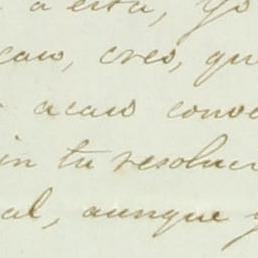 a esta, Yo
caso, creo, qu
acaso conve
in tu resoluci
al, aunque y